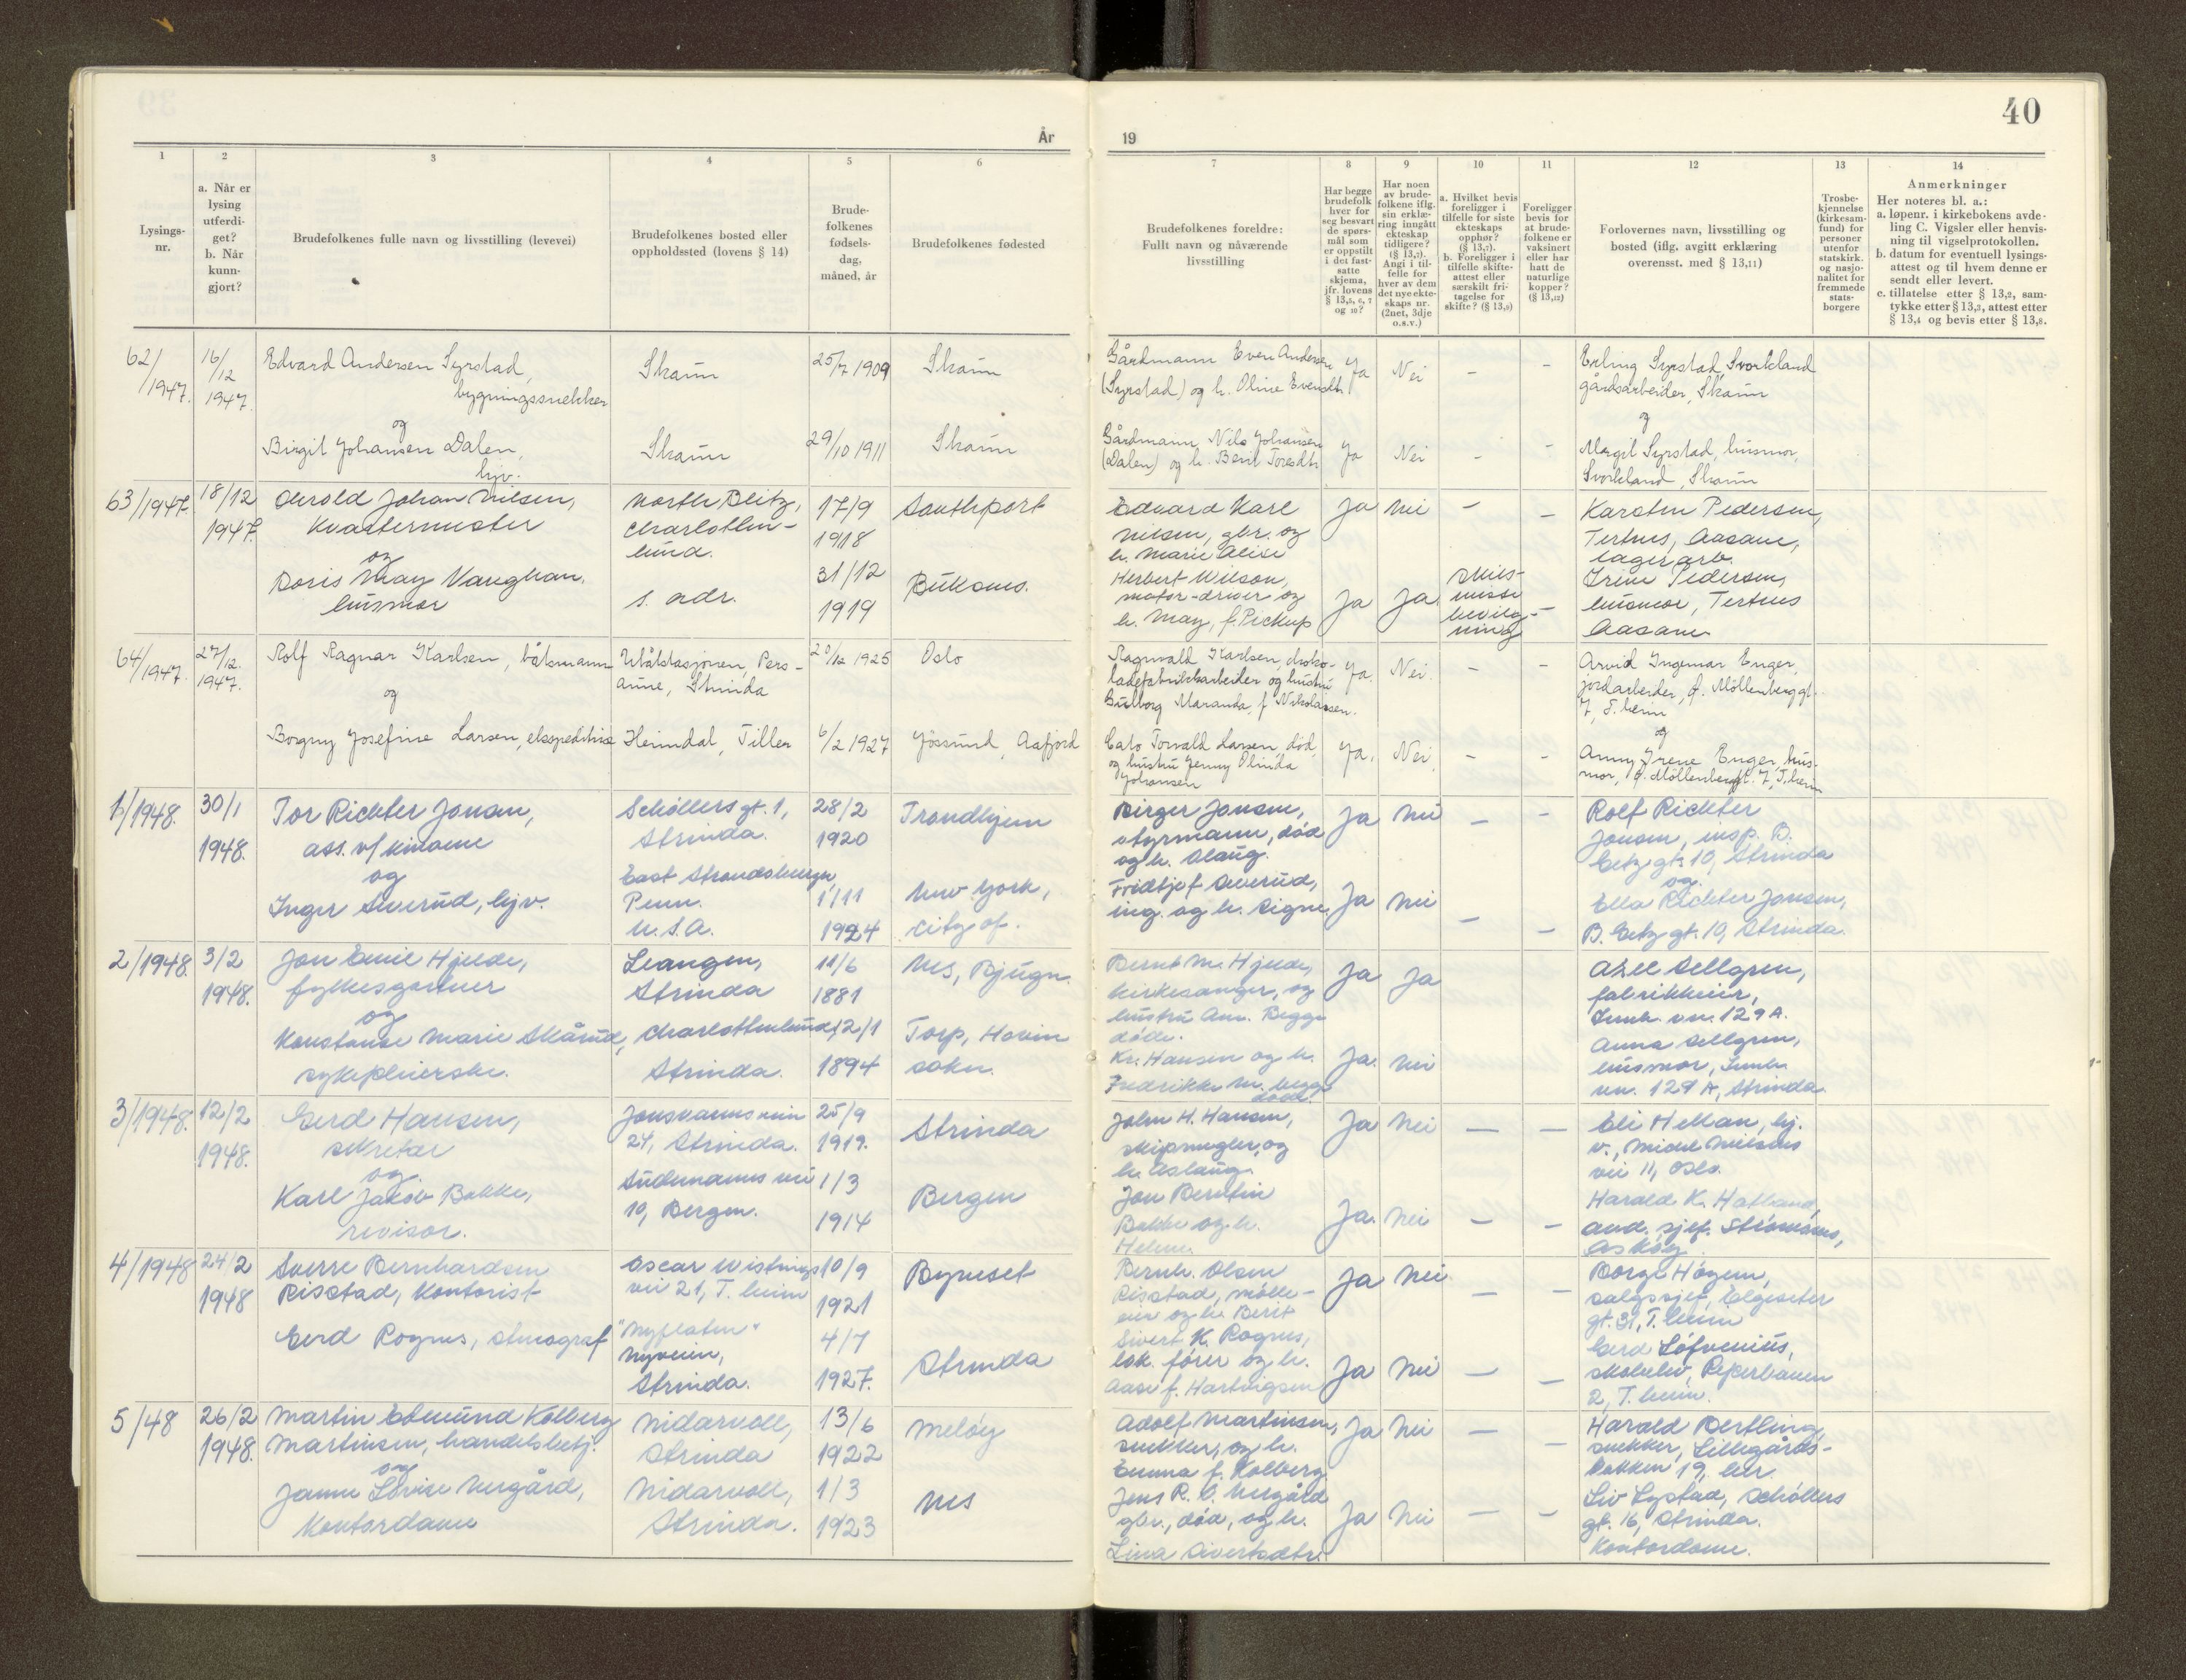 40
År
19
1
2
3
4
5
6
7
8
9
10
11
12
13
14
Lysings-
nr.
a. Når er
lysing
utferdi-
get?
b. Når
kunn-
gjort?
Brudefolkenes fulle navn og livsstilling (levevei)
Brudefolkenes bosted eller
oppholdssted (lovens § 14)
Brude-
folkenes
fødsels-
dag,
måned, år
Brudefolkenes fødested
Brudefolkenes foreldre:
Fullt navn og nåværende
livsstilling
Har begge
brudefolk
hver for
seg besvart
de spørs-
mål som
er oppstilt
i det fast-
satte
skjema,
jfr. lovens
§ 13,5, 6, 7
og 10?
Har noen
av brude-
folkene iflg.
sin erklæ-
ring inngått
ekteskap
tidligere?
(§ 13,7).
Angi i til-
felle for
hver av dem
det nye ekte-
skaps nr.
(2net, 3dje
o.s.v.)
a. Hvilket bevis
foreligger i
tilfelle for siste
ekteskaps
opphør?
(§ 13,7).
b. Foreligger i
tilfelle skifte-
attest eller
særskilt fri-
tagelse for
skifte? (§ 13,9)
Foreligger
bevis for
at brude-
folkene er
vaksinert
eller har
hatt de
naturlige
kopper?
(§ 13,12)
Forlovernes navn, livsstilling og
bosted (iflg. avgitt erklæring
overensst. med § 13,11)
Trosbe-
kjennelse
(kirkesam-
fund) for
personer
utenfor
statskirk.
og nasjo-
nalitet for
fremmede
stats-
borgere
Anmerkninger
Her noteres bl. a.:
a. løpenr. i kirkebokens avde-
ling C. Vigsler eller henvis-
ning til vigselprotokollen.
b. datum for eventuell lysings-
attest og til hvem denne er
sendt eller levert.
c. tillatelse etter § 13,2, sam-
tykke etter § 13,3, attest etter
§ 13,4 og bevis etter § 13,8.
62/
1947.
16/
12
1947.
Edvard Andersen Syrstad,
bygningssnekker
og
Birgit Johansen Dalen,
hjv.
Skaun
Skaun
25/7 1909
29/10 1911
Skaun
Skaun
Gårdmann Even Andersen
(Syrstad) og h. Oline Evensdtr.
Gårdmann Nils Johansen
(Dalen) og h. Berit Toresdtr.
Ja
Nei
-
-
Ja
Nei
-
-
Erling Syrstad, Svorkland
gårdsarbeider, Skaun
og
Margit Syrstad, husmor,
Svorkland, Skaun
63/1947.
18/12
1947.
Harold Johan Nilsen,
Kvartermester
og
Doris May Vaughan,
husmor
North Blitz,
Charlotten-
lund.
s. adr.
17/9
1918
31/12
1919
Southport
Edvard Karl
Nilsen, gbr. og
h. Marie Alise
Herbert Wilson,
motor-driver og
h. May, f. Pickup
Ja
nei
-
-
Ja
Ja
skils-
misse
bevilg-
ning
-
Karsten Pedersen,
Tertnes, Aasane,
lagerarb.
Irene Pedersen,
husmor, Tertnes
Aasane
64/1947.
27/12.
1947.
Rolf Ragnar Karlsen, båtsmann
og
Borgny Josefine Larsen, ekspeditrise
Ubåtstasjonen, Pers-
aune, Strinda
Heimdal, Tiller
20/12 1925
6/2 1927
Oslo
Jössund, Aafjord
Ragnvald Karlsen, choko-
ladefabrikkarbeider og hustru
Gulborg Maranda, f. Nikolaisen.
Cato Torvald Larsen, död,
og hustru Jenny Olinda
Johansen
Ja.
Nei.
-
-
Ja.
Nei.
-
-
Arvid Ingemar Enger,
jordarbeider, ö. Möllenberggt.
7, T.heim
og
Anny Irene Enger, hus-
mor, ö. Möllenberggt. 7, T.heim
1/1948.
30/1
1948.
Tor Richter Jonsen,
ass. v/ kinoene
og
Inger Siverud, hjv.
Schöllers gt. 1,
Strinda.
East Stroudsburger,
Penn.
U.S.A.
28/2
1920
1/11
1924
Trondhjem
New York,
City of.
Birger Jonsen,
styrmann, död
og h. Olaug.
Fridtjof Siverud,
ing. og h. Signe.
Ja
nei
-
-
Ja
nei
-
-
Rolf Richter
Jonsen, insp. B.
Getz gt. 10, Strinda
og
Ella Richter Jonsen,
B. Getz gt. 10, Strinda.
2/1948.
3/2
1948.
Jon Emil Hjelde,
fylkesgartner
og
Konstanse Marie Skårud,
sykepleierske.
Leangen,
Strinda
Charlottenlund,
Strinda.
11/6
1881
12/1
1894
Nes, Bjugn.
Torp, Hovin
sokn.
Bernt M. Hjelde,
kirkesanger, og
hustru Ane. Begge
döde.
Kr. Hansen og h.
Fredrikke M. begge
döde.
Ja
Ja
Ja.
nei
Axel Sellgren,
fabrikkeier,
129 A.
Anna Sellgren,
husmor,
129 A, Strinda.
3/1948.
12/2
1948.
Gerd Hansen,
sekretær
og
Karl Jakob Bakke,
revisor.
Jonsvannsveien
24, Strinda.
Südmanns vei
10, Bergen.
25/9
1919.
1/3
1914
Strinda
Bergen
John H. Hansen,
skipsmegler, og
h. Aslaug.
Jon Berntin
Bakke og h.
Helene.
Ja
Nei
-
-
Ja.
nei
-
-
Eli Hellan, hj.
v., Michel Nielsens
vei 11, Oslo.
Harald K. Hatland,
avd. sjef. Strömsnes,
Asköy.
4/1948
24/2
1948
Sverre Bernhardsen
Risstad, kontorist
Gerd Rognes, stenograf
Oscar Wistings
vei 21, T. heim
"Nyflaten"
Nyveien,
Strinda.
10/9
1921
4/7
1927.
Byneset
Strinda
Bernh. Olsen
Risstad, mölle-
eier og h. Berit
Sivert K. Rognes,
lok. förer og h.
Aase f. Hartvigsen
Ja
Nei
-
-
Ja
Nei
-
-
Börge Högem,
salgssjef, Elgeseter
gt. 31, T. heim
Gerd Löfvenius,
skoleelev, Reperbanen
2, T. heim.
5/48
26/2
1948.
Martin Edmund Kolberg
Martinsen, handelsbetj.
og
Janne Lovise Nergård,
Kontordame
Nidarvoll,
Strinda
Nidarvoll,
Strinda.
13/6
1922
1/3
1923
Melöy
Nes
Adolf Martinsen,
snekker, og h.
Emma f. Kolberg.
Jens R. O. Nergård
gbr., död, og h.
Lina Sivertsdtr.
Ja
Nei
-
-
Ja
Nei
-
-
Harald Bertling,
snekker, Lillegårds-
bakken 19, her.
Liv Lystad, Schöllers
gt. 16, Strinda.
Kontordame.